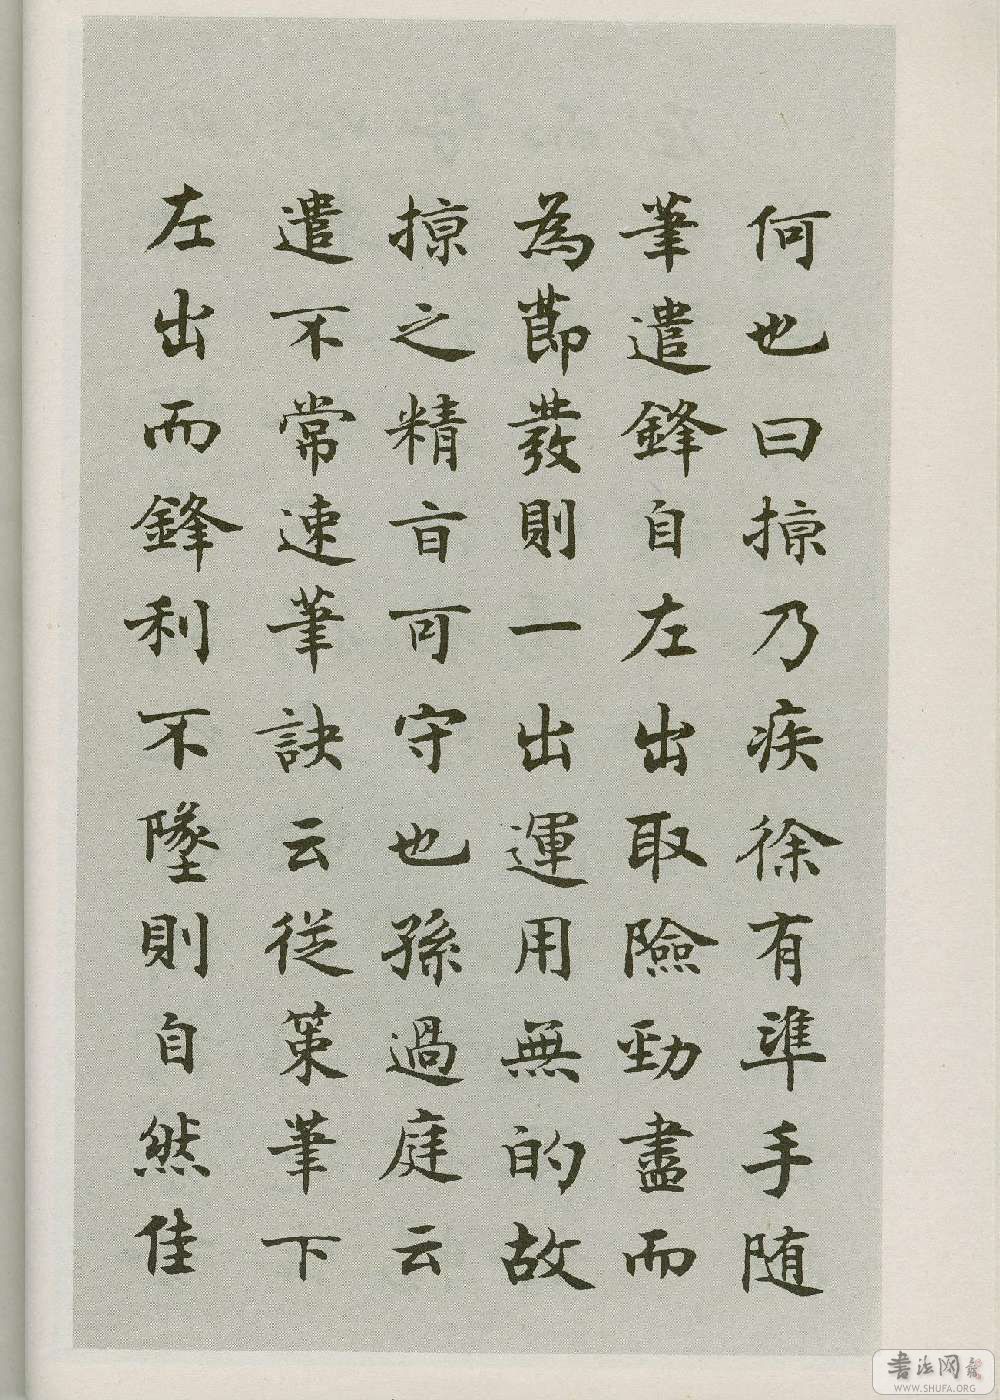 何也曰掠乃疾徐有準手随
筆遣鋒自左出取險勁盡而
為莭發則一出運用無的故
掠之精㫖可守也孫過庭云
遣不常速筆訣云從策筆下
左出而鋒利不墜則自然佳
書法网
WWW.SHUFA.ORG